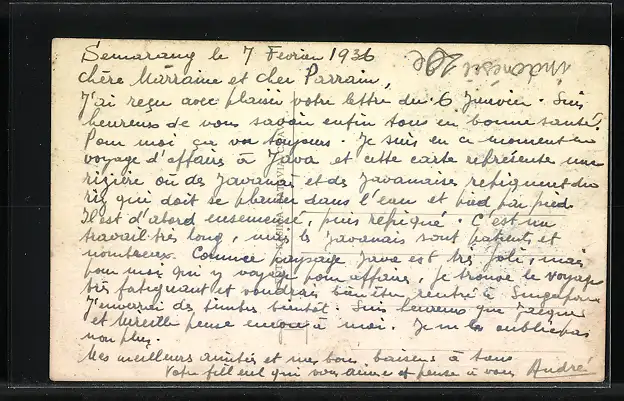 Semarang le 7 Février 1936
Indonésie 20c
Chère Marraine et cher Parrain,
J'ai reçu avec plaisir votre lettre du 6 Janvier. Suis
heureux de vous savoir enfin tous en bonne santé.
Pour moi ça va toujours. Je suis en ce moment en
voyage d'affaires à Java et cette carte représente une
rizière où des Javanais et des Javanaises repiquent du
riz qui doit se planter dans l'eau et pied par pied.
Il est d'abord ensemensé, puis repiqué. C'est un
travail très long, mais les Javanais sont patients et
nombreux. Comme paysage Java est très joli, mais
pour moi qui y voyage pour affaires, je trouve le voyage
très fatiguant et voudrais bien être rentré à Singapour
J'enverrai des timbres bientôt. Suis heureux que Jacques
et Mireille pense encore à moi. Je ne les oublie pas
non plus.
Mes meilleurs amitiés et mes bons baisers à tous
Votre filleul qui vous aime et pense à vous André